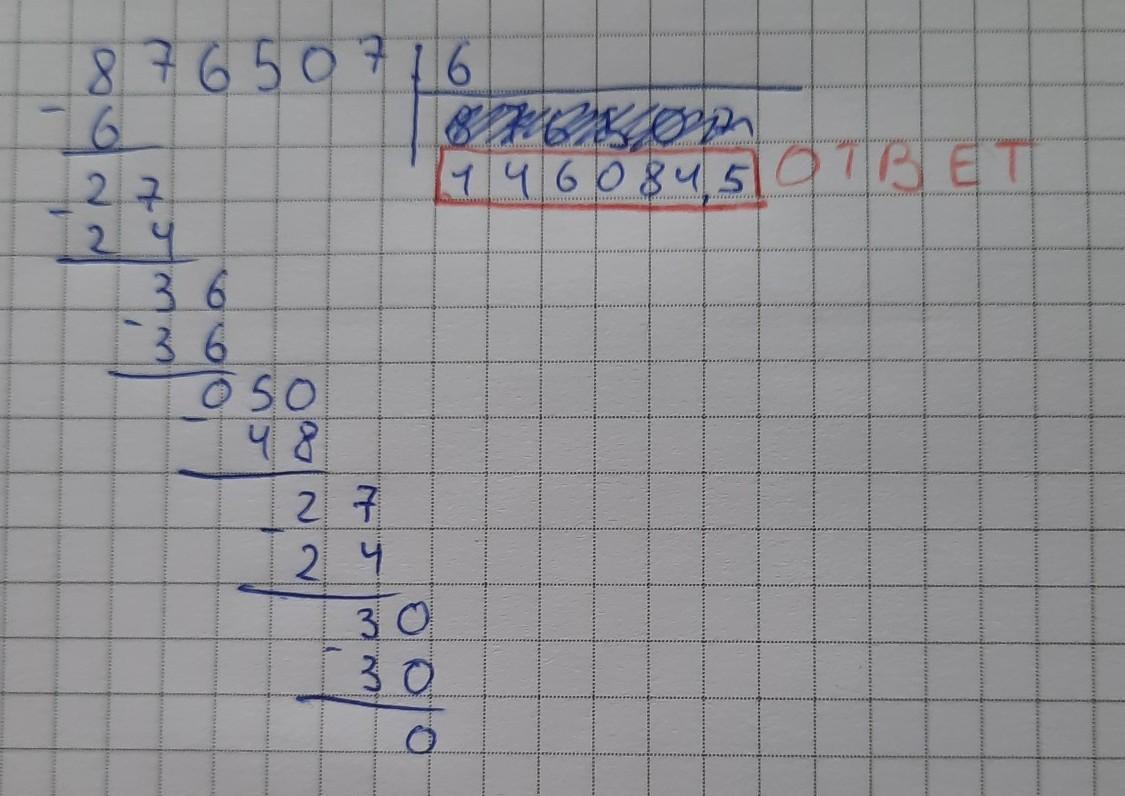 876507 | 6
- 6
146084,5 ОТВЕТ
- 27
24
36
- 36
050
- 48
27
- 24
30
- 30
0